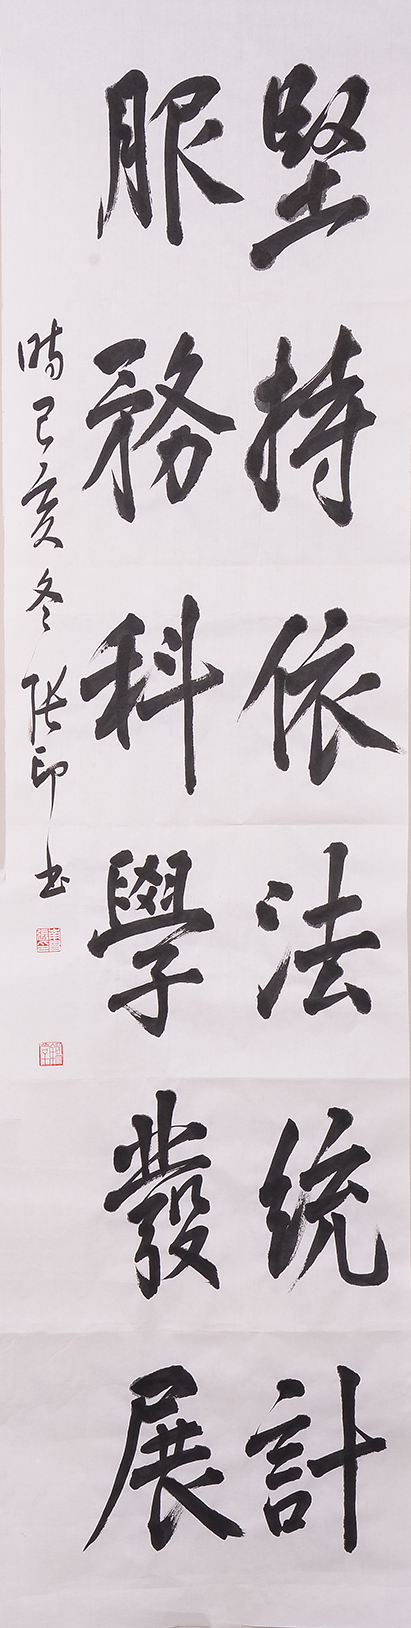 堅持依法統計
服務科學發展
時己亥冬張印書